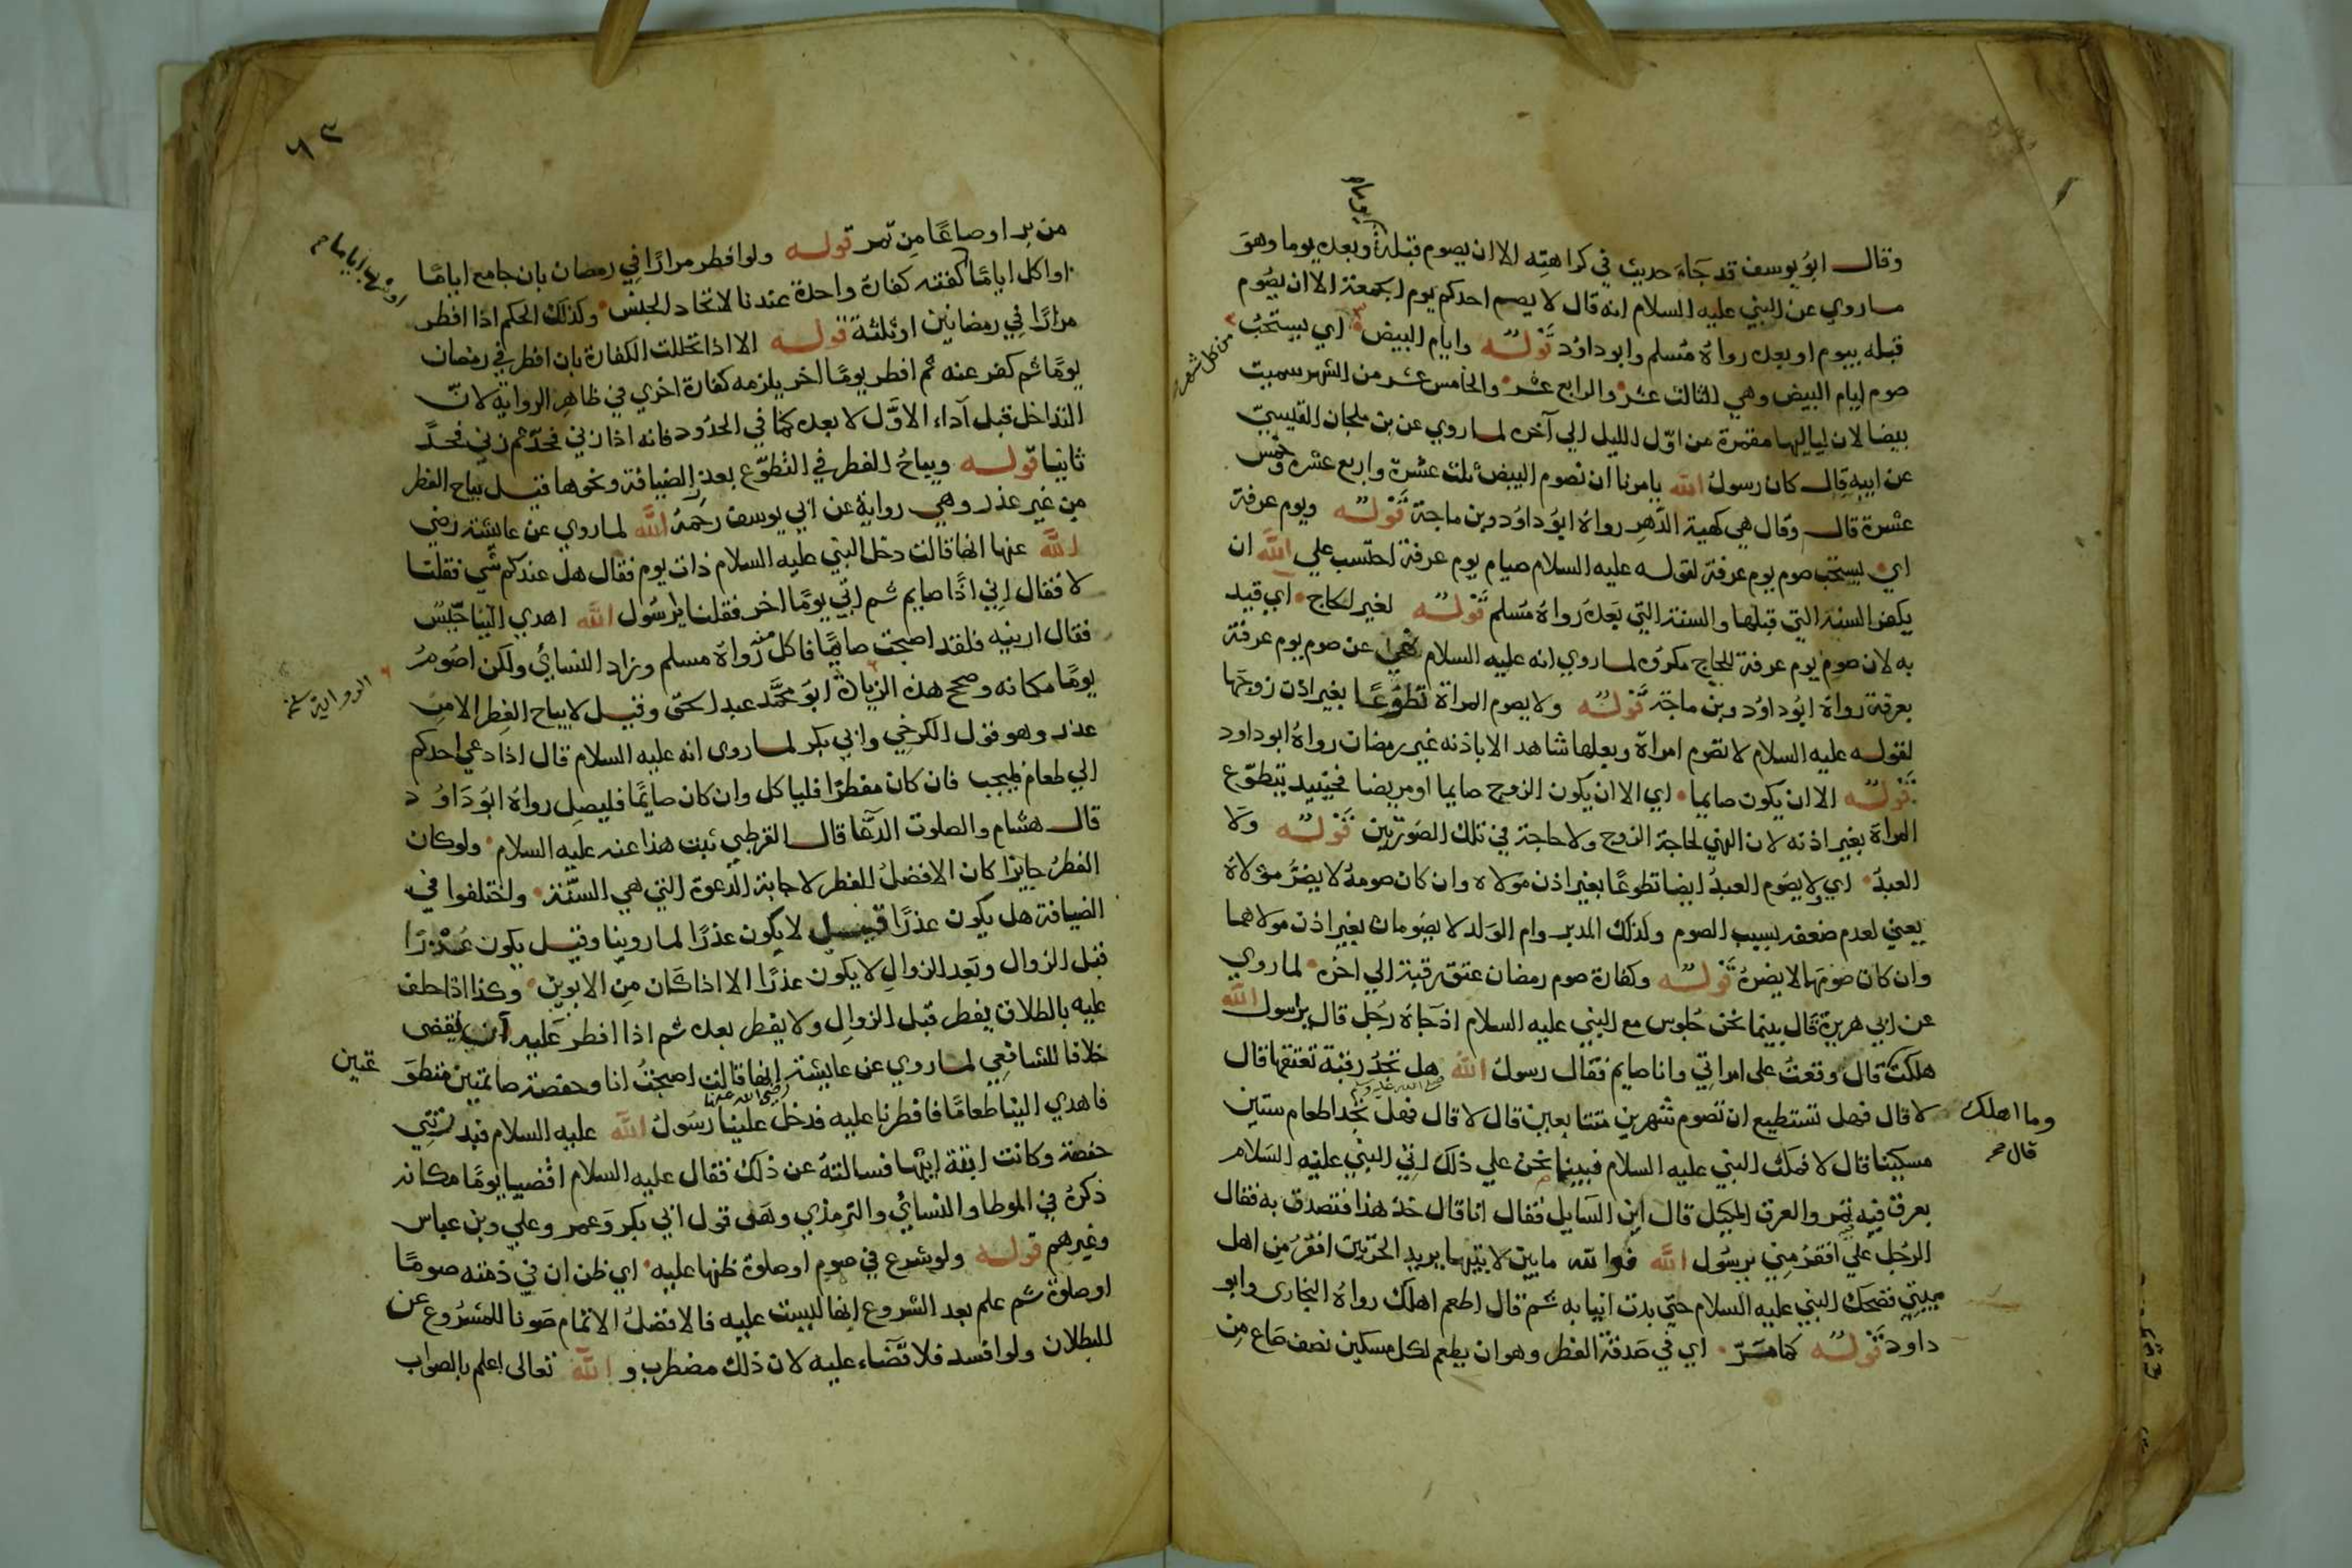 يوما
وقال ابو يوسف قد جاء حديث في كراهته الا ان يصوم قبله وبعده يوما وهو
ماروي عن النبي عليه السلام انه قال لا يصم احدكم يوم الجمعة الا ان يصوم
قبله بيوم او بعده رواه مسلم وابو داود قوله وايام البيض اي يستحب
من كل شهر
صوم ايام البيض وهي الثالث عشر والرابع عشر والخامس عشر من الشهر سميت
بيضا لان لياليها مقمرة من اول الليل الي آخره لما روي عن بن ملحان القيسي
عن ابيه قال كان رسول الله يامرنا ان نصوم البيض ثلث عشرة واربع عشرة وخمس
عشرة قال وقال هي كهية الدهر رواه ابو داود وبن ماجة قوله ويوم عرفة
اي يستحب صوم يوم عرفة لقوله عليه السلام صيام يوم عرفة احتسب علي الله ان
يكفر السنة التي قبلها والسنة التي بعده رواه مسلم قوله لغير الحاج اي قيد
به لان صوم يوم عرفة للحاج مكروه لما روي انه عليه السلام نهي عن صوم يوم عرفة
بعرفة رواه ابو داود وبن ماجة قوله ولا يصوم المراة تطوعا بغير اذن زوجها
لقوله عليه السلام لا تصوم امراة وبعلها شاهد الا باذنه غير رمضان رواه ابو داود
قوله الا ان يكون صايما اي الا ان يكون الزوج صايما او مريضا فحينيد تتطوع
المراة بغير اذنه لان النهي لحاجة الزوج ولا حاجة في تلك الصورتين قوله ولا
العبد اي ولا يصوم العبد ايضا تطوعا بغير اذن مولاه وان كان صومه لا يضر مولاه
يعني لعدم ضعفه بسبب الصوم وكذلك المدبر وام الولد لا يصومان بغير اذن مولاهما
وان كان صومهما لا يضره قوله وكفارة صوم رمضان عتق رقبة الي اخره لما روي
عن ابي هريرة قال بينما نحن جلوس مع النبي عليه السلام اذ جاه رجل قال يرسول الله
هلكت قال وقعت على امراتي وانا صايم فقال رسول الله هل تجد رقبة تعتقها قال
وما اهلك
قال
صلى الله عليه وسلم
لا قال فهل تستطيع ان تصوم شهرين متتابعين قال لا قال فهل تجد اطعام ستين
مسكينا قال لا فمكث النبي عليه السلام فبينا نحن علي ذلك اتي النبي عليه السلام
بعرق فيه تمر والعرق المكيل قال اين السايل فقال انا قال خذ هذا فتصدق به فقال
الرجل علي افقر مني يرسول الله فوالله ما بين لابتيها يريد الحرتين افقر من اهل
بيتي فضحك النبي عليه السلام حتي بدت انيابه ثم قال اطعم اهلك رواه البخاري وابو
داود قوله كما مر اي في صدقة الفطر وهو ان يطعم لكل مسكين نصف صاع من
٦٣
من بر او صاعا من تمر قوله ولو افطر مرارا في رمضان بان جامع اياما
او اكل اياما كفته كفارة واحدة عندنا لاتحاد الجنس وكذلك الحكم اذا افطر
مرارا في رمضانين او ثلثة قوله الا اذا تخللت الكفارة بان افطر في رمضان
يوما ثم كفر عنه ثم افطر يوما اخر يلزمه كفارة اخري في ظاهر الرواية لان
التداخل قبل آداء الاول لا بعده كما في الحدود فانه اذا زني فحد ثم زني فحد
ثانيا قوله ويباح الفطر في التطوع بعذر الضيافة ونحوها قيل يباح الفطر
من غير عذر وهي رواية عن ابي يوسف رحمه الله لما روي عن عايشة رضي
الله عنها انها قالت دخل النبي عليه السلام ذات يوم فقال هل عندكم شي فقلنا
لا فقال اني اذا صايم ثم اتي يوما اخر فقلنا يرسول الله اهدي الينا حيس
فقال ارينيه فلقد اصبحت صايما فاكل منه رواه مسلم وزاد النسائي ولكن اصوم
يوما مكانه وصحح هذه الزيادة ابو محمد عبد الحق وقيل لا يباح الفطر الا من
عذر وهو قول الكرخي وابي بكر لما روى انه عليه السلام قال اذا دعي احدكم
الي طعام فليجب فان كان مفطرا فلياكل وان كان صايما فليصل رواه ابو داود
قال هشام والصلوت الدعا قال القرطبي ثبت هذا عنه عليه السلام ولو كان
الفطر جايزا كان الافضل الفطر لاجابة الدعوة التي هي السنة واختلفوا في
الضيافة هل يكون عذرا قيل لا يكون عذرا لما روينا وقيل يكون عذرا
قبل الزوال وبعد الزوال لا يكون عذرا الا اذا كان من الابوين وكذا اذا حلف
عليه بالطلاق يفطر قبل الزوال ولا يفطر بعده ثم اذا افطر عليه ان يقضى
خلافا للشافعي لما روي عن عايشة انها قالت اصبحت انا وحفصة صايمتين متطو
عتين
رضي الله عنها
فاهدي الينا طعاما فافطرنا عليه فدخل علينا رسول الله عليه السلام فبدرتني
حفصة وكانت ابنة ابيها فسالته عن ذلك فقال عليه السلام اقضيا يوما مكانه
ذكره في الموطا والنسائي والترمذي وهي قول ابي بكر وعمر وعلي وبن عباس
وغيرهم قوله ولو شرع في صوم او صلوة ظنها عليه اي ظن ان في ذمته صوما
او صلوة ثم علم بعد الشروع انها ليست عليه فالافضل الاتمام صونا للمشروع عن
البطلان ولو افسد فلا قضاء عليه لان ذلك مضطرب والله تعالى اعلم بالصواب